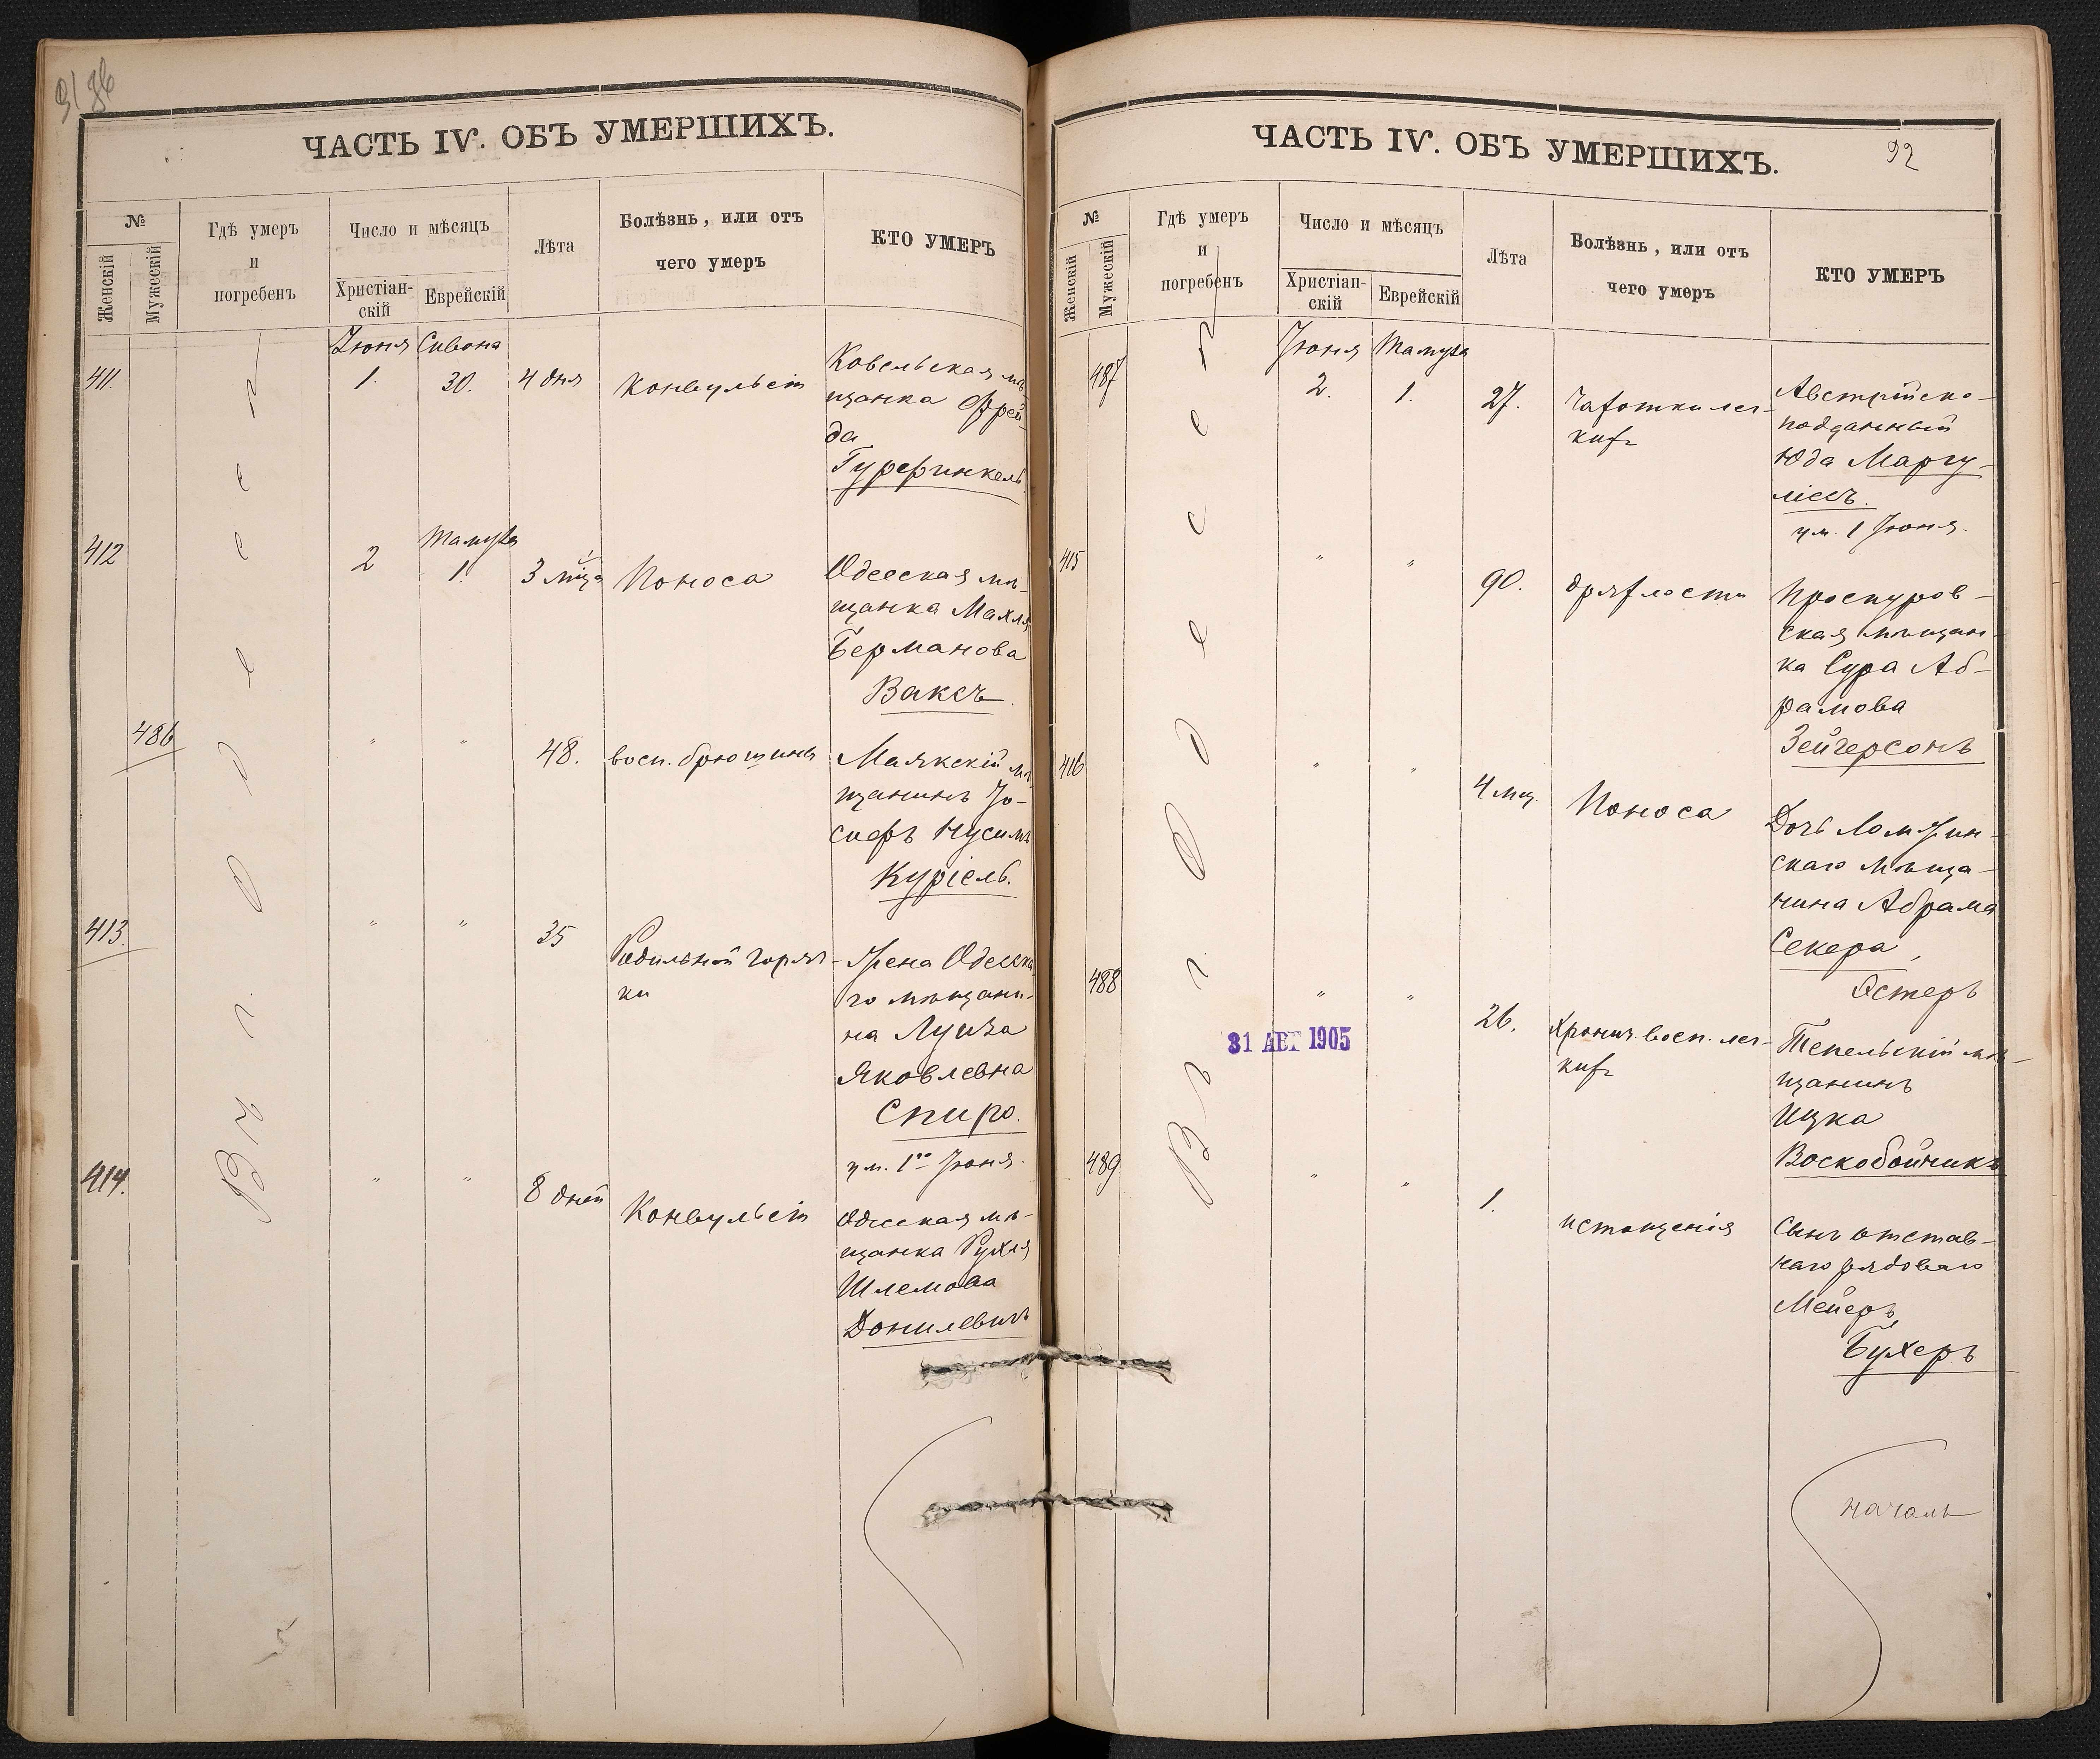 ЧАСТЬ IV. ОБЪ УМЕРШИХЪ.
№
Женскій
Мужескій
Гдѣ умеръ
и
погребенъ
Число и мѣсяцъ
Христіан-
скій
Еврейскій
Лѣта
Болѣзнь, или отъ
чего умеръ
КТО УМЕРЪ
Въ г. Одессѣ
Іюня Сивона
411. 1. 30. 4 дня Конвульсій
Ковельская мѣ-
щанка Фрей-
да
Гурфинкель
Тамуза
412 2 1. 3 мѣца Поноса
Одесская мѣ-
щанка Махля
Берманова
Ваксъ.
486 " " 48. восп. брюшины
Маякскій мѣ-
щанинъ Іо-
сифъ Нусимъ
Куріель.
413. " " 35 Родильной горяч-
ки
Жена Одесска-
го мѣщани-
на Луиза
Яковлевна
Спиро.
ум. 1го Іюня.
414. " " 8 дней Конвульсій
Одесская мѣ-
щанка Рухля
Шлемова
Донилевичъ
ЧАСТЬ IV. ОБЪ УМЕРШИХЪ.
92
№
Женскій
Мужескій
Гдѣ умеръ
и
погребенъ
Число и мѣсяцъ
Христіан-
скій
Еврейскій
Лѣта
Болѣзнь, или отъ
чего умеръ
КТО УМЕРЪ
Въ г. Одессѣ
Іюня Тамуза
487 2. 1. 27. Чахотки лег-
кихъ
Австрійско-
подданный
Юда Маргу-
ліесъ.
ум. 1 Іюня.
415 " " 90. дряхлости
Проскуров-
ская мѣщан-
ка Сура Аб-
рамова
Зейгерсонъ
416 " " 4 мц. Поноса
Дочь Ломжин-
скаго мѣща-
нина Абрама
Секера,
Эстеръ
488 " " 26. Хронич. восп. лег-
кихъ
31 АВГ 1905
мѣ-
щанинъ
Ицка
Воскобойникъ
489 " " 1. истощенія
Сынъ отстав-
наго рядоваго
Мейеръ
Бухеръ